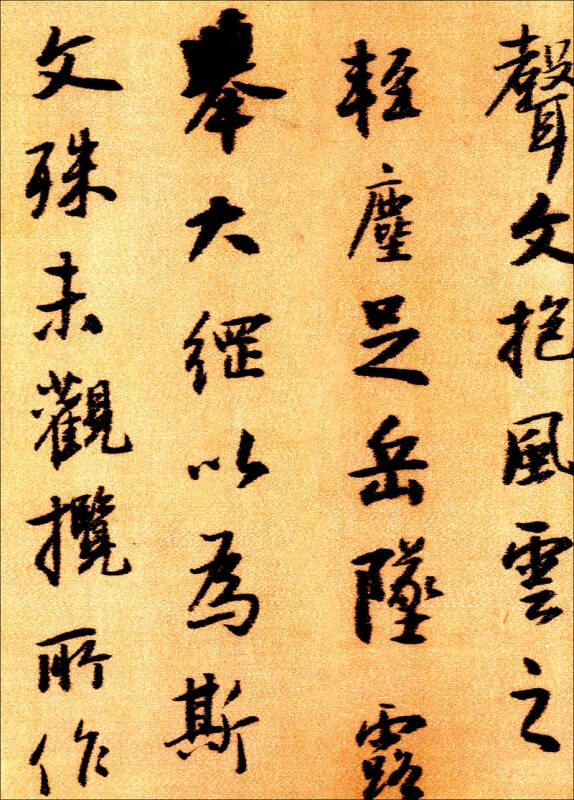 聲文抱風雲之
輕塵足岳墜露
舉大綱以為斯
文殊未觀攬所作